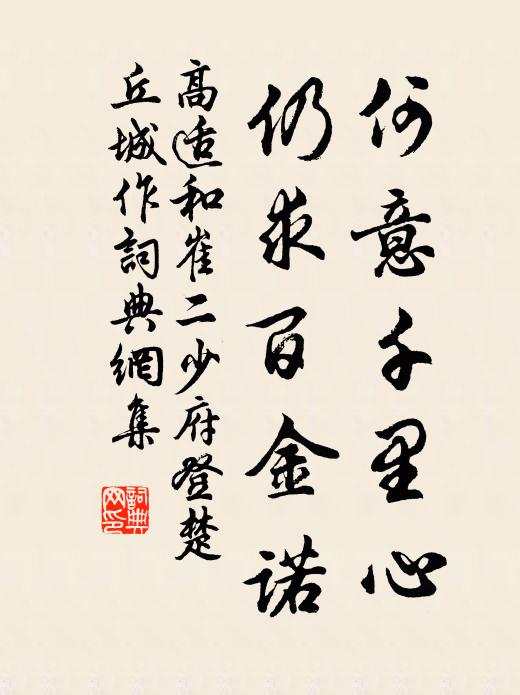 何意千里心
仍求百金諾
高适和崔二少府登楚
丘城作詞典網集
詞典
网印